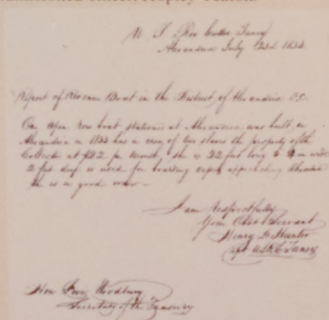 U. S. Rev Cutter Taney
Alexandria July 22d 1834
Report of Revenue Boat in the District of Alexandria D.C.
One open row boat stationed at Alexandria was built in
Alexandria in 1833 has a crew of two slaves the property of the
Collector at $12 pr month, she is 22 feet long
2 feet deep is used for boarding vessels
She is in good order
I am respectfully
Your Obdt Servant
Henry D. Hunter
Capt U.S.R.C. Taney
Hon Levi Woodbury
Secretary of the Treasury